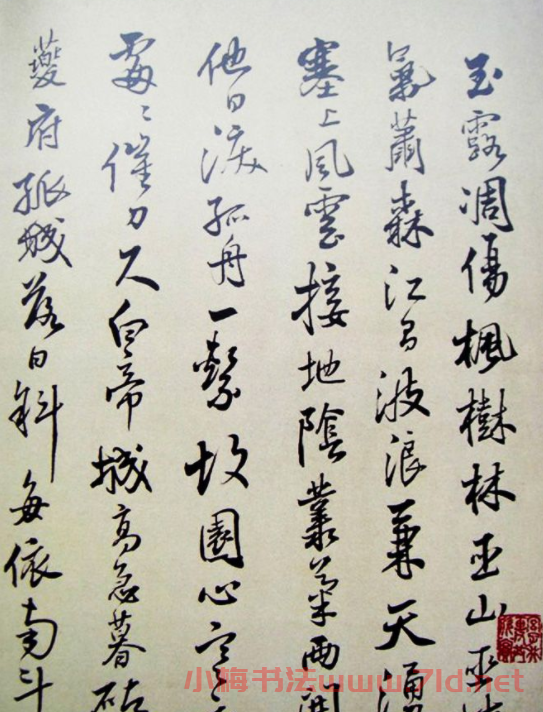 玉露凋傷楓樹林巫山巫
氣蕭森江間波浪兼天湧
塞上風雲接地陰叢菊兩開
他日淚孤舟一繫故園心寒
處處催刀尺白帝城高急暮砧
夔府孤城落日斜每依南斗
小梅书法www.7ld.net